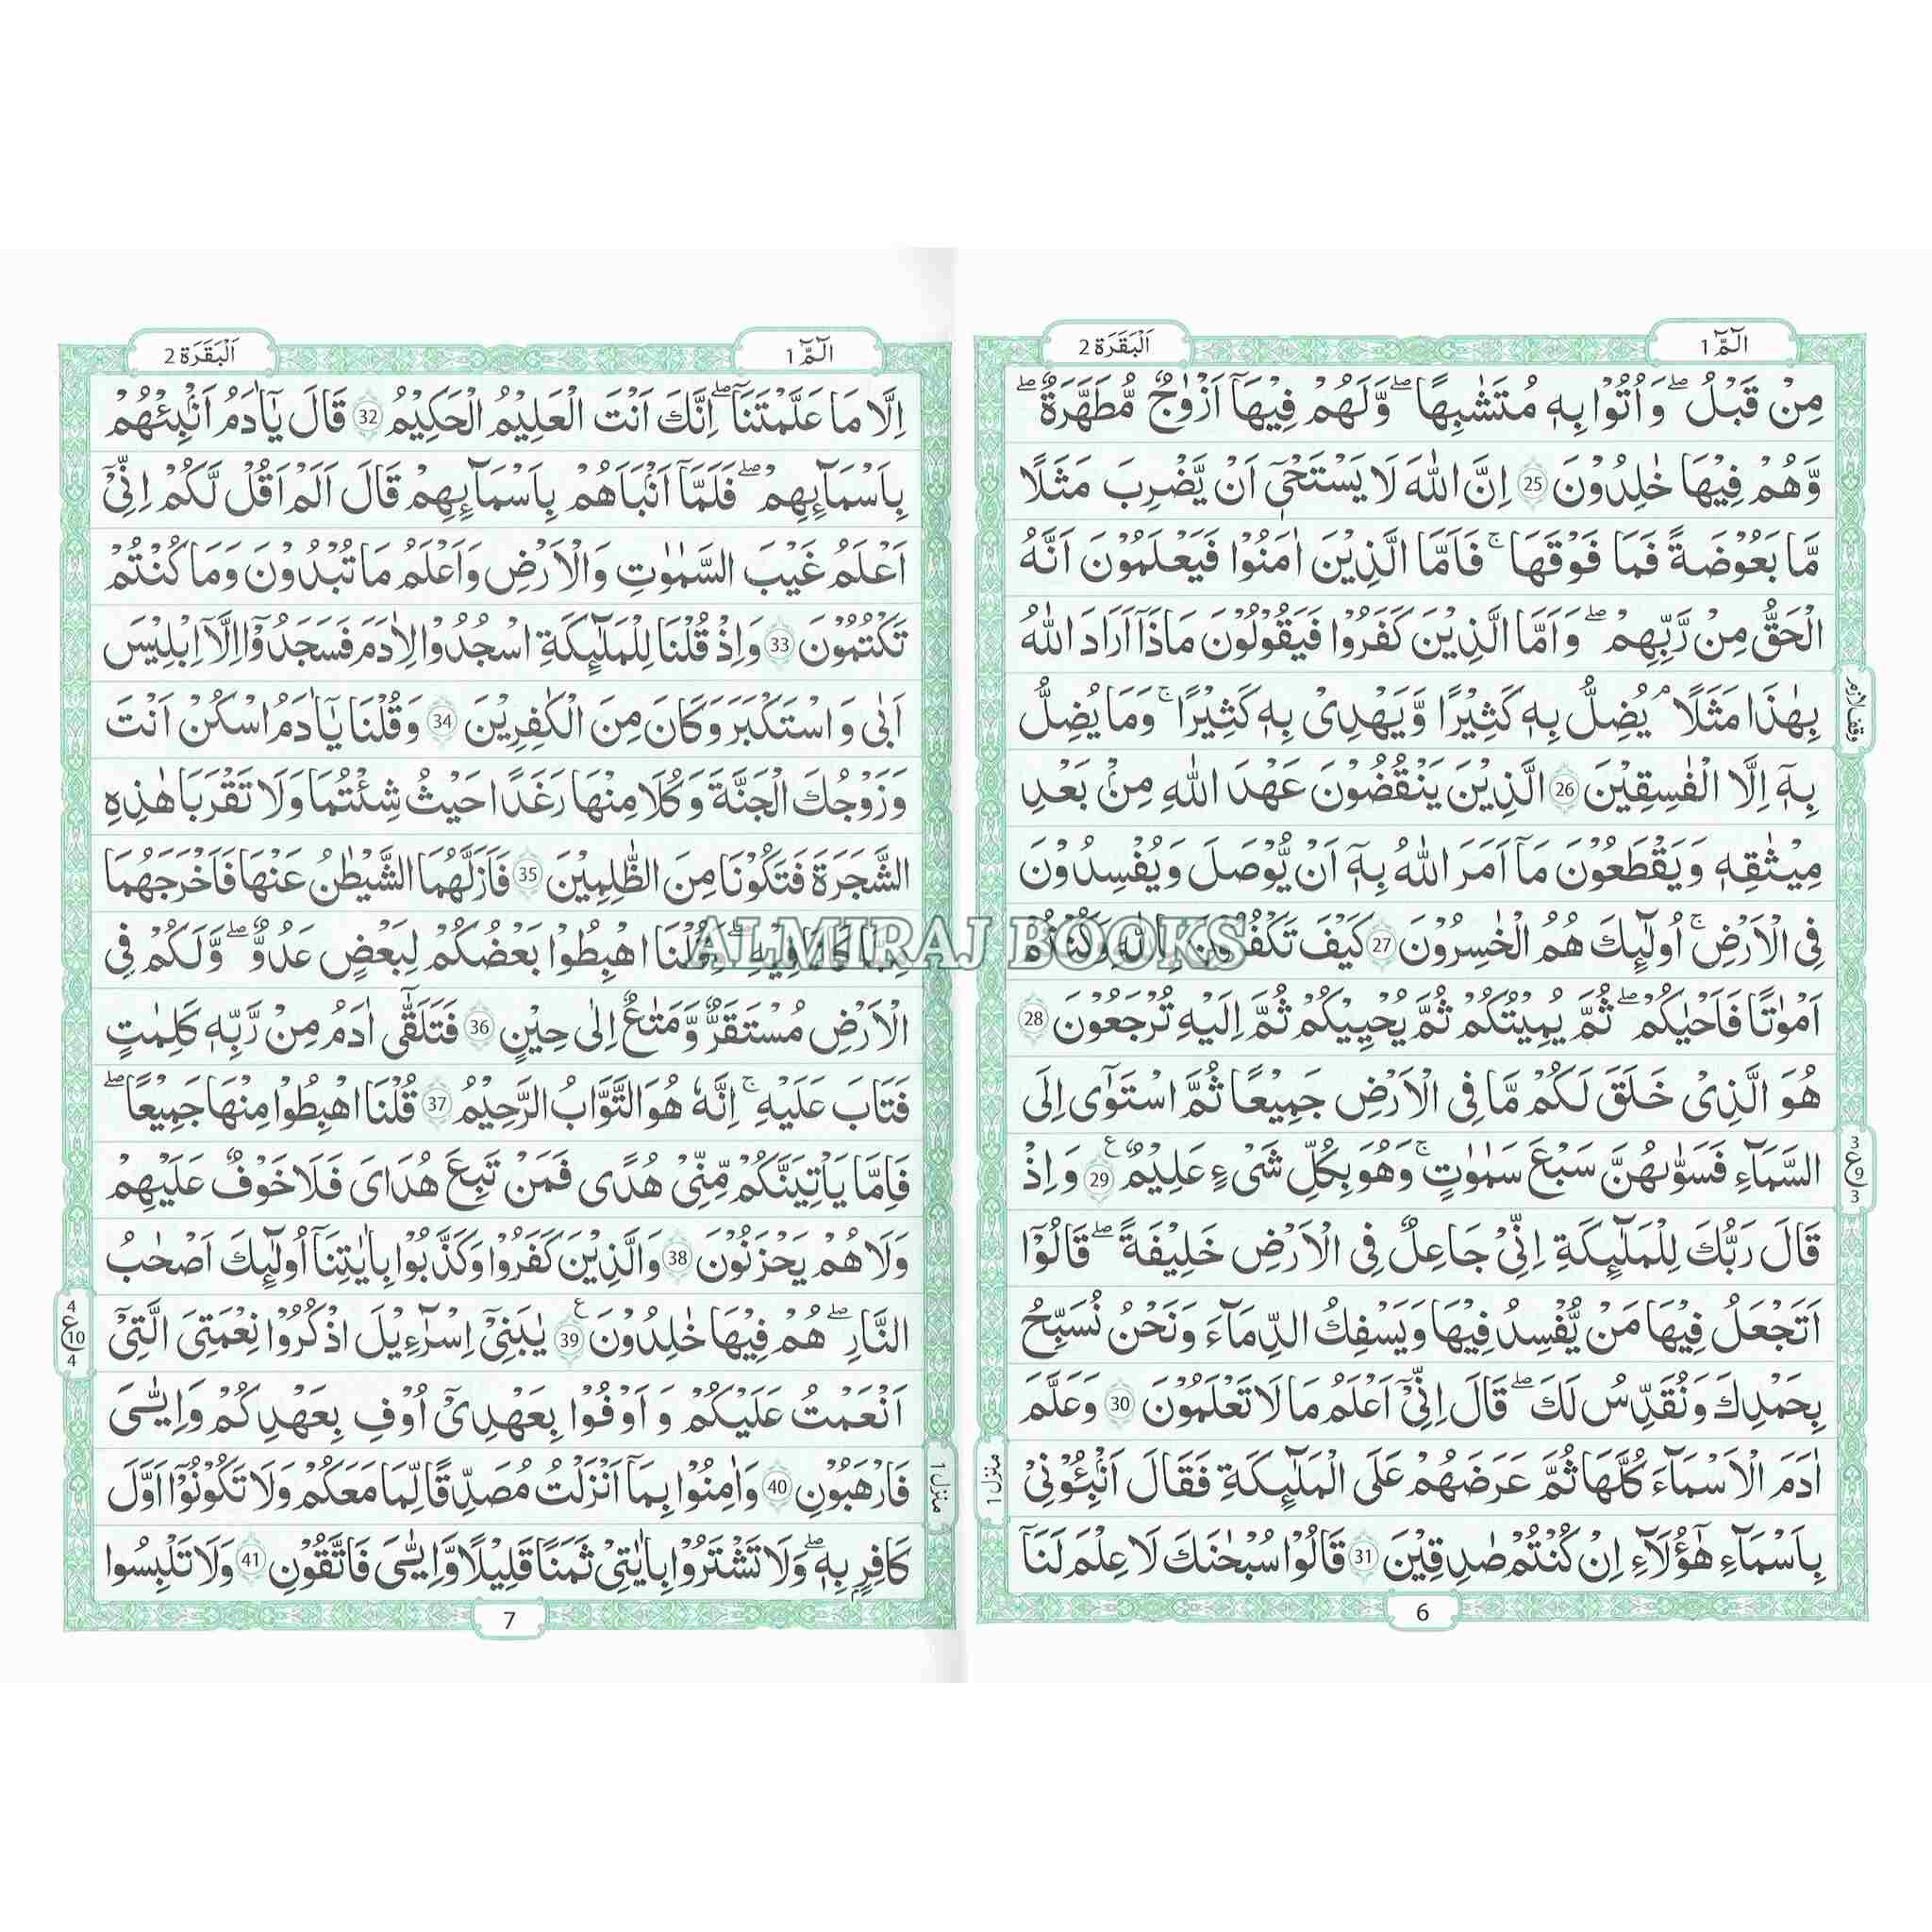 الٓمّٓ 1
اَلْبَقَرَة 2
مِنْ قَبْلُ ۖ وَاُتُوْا بِهٖ مُتَشٰبِهًا ۖ وَّلَهُمْ فِيْهَآ اَزْوٰجٌ مُّطَهَّرَةٌ ۖ
وَّهُمْ فِيْهَا خٰلِدُوْنَ 25 اِنَّ اللّٰهَ لَا يَسْتَحْىٖٓ اَنْ يَّضْرِبَ مَثَلًا
مَّا بَعُوْضَةً فَمَا فَوْقَهَا ۚ فَاَمَّا الَّذِيْنَ اٰمَنُوْا فَيَعْلَمُوْنَ اَنَّهُ
الْحَقُّ مِنْ رَّبِّهِمْ ۖ وَاَمَّا الَّذِيْنَ كَفَرُوْا فَيَقُوْلُوْنَ مَاذَآ اَرَادَ اللّٰهُ
بِهٰذَا مَثَلًا ۘ يُضِلُّ بِهٖ كَثِيْرًا وَّيَهْدِىْ بِهٖ كَثِيْرًا ۚ وَمَا يُضِلُّ
وقف لازم
بِهٖٓ اِلَّا الْفٰسِقِيْنَ 26 الَّذِيْنَ يَنْقُضُوْنَ عَهْدَ اللّٰهِ مِنْۢ بَعْدِ
مِيْثٰقِهٖ وَيَقْطَعُوْنَ مَآ اَمَرَ اللّٰهُ بِهٖٓ اَنْ يُّوْصَلَ وَيُفْسِدُوْنَ
فِى الْاَرْضِ ۚ اُولٰٓئِكَ هُمُ الْخٰسِرُوْنَ 27 كَيْفَ تَكْفُرُوْنَ بِاللّٰهِ وَكُنْتُمْ
اَمْوٰتًا فَاَحْيٰكُمْ ۖ ثُمَّ يُمِيْتُكُمْ ثُمَّ يُحْيِيْكُمْ ثُمَّ اِلَيْهِ تُرْجَعُوْنَ 28
هُوَ الَّذِىْ خَلَقَ لَكُمْ مَّا فِى الْاَرْضِ جَمِيْعًا ثُمَّ اسْتَوٰٓى اِلَى
السَّمَآءِ فَسَوّٰىهُنَّ سَبْعَ سَمٰوٰتٍ ۚ وَهُوَ بِكُلِّ شَىْءٍ عَلِيْمٌ 29 ع وَاِذْ
3 ع 9 3
قَالَ رَبُّكَ لِلْمَلٰٓئِكَةِ اِنِّىْ جَاعِلٌ فِى الْاَرْضِ خَلِيْفَةً ۖ قَالُوْٓا
اَتَجْعَلُ فِيْهَا مَنْ يُّفْسِدُ فِيْهَا وَيَسْفِكُ الدِّمَآءَ وَنَحْنُ نُسَبِّحُ
بِحَمْدِكَ وَنُقَدِّسُ لَكَ ۖ قَالَ اِنِّىْٓ اَعْلَمُ مَا لَا تَعْلَمُوْنَ 30 وَعَلَّمَ
اٰدَمَ الْاَسْمَآءَ كُلَّهَا ثُمَّ عَرَضَهُمْ عَلَى الْمَلٰٓئِكَةِ فَقَالَ اَنْۢبِئُوْنِىْ
منزل 1
بِاَسْمَآءِ هٰٓؤُلَآءِ اِنْ كُنْتُمْ صٰدِقِيْنَ 31 قَالُوْا سُبْحٰنَكَ لَا عِلْمَ لَنَآ
6
الٓمّٓ 1
اَلْبَقَرَة 2
اِلَّا مَا عَلَّمْتَنَا ۖ اِنَّكَ اَنْتَ الْعَلِيْمُ الْحَكِيْمُ 32 قَالَ يٰٓاٰدَمُ اَنْۢبِئْهُمْ
بِاَسْمَآئِهِمْ ۖ فَلَمَّآ اَنْۢبَاَهُمْ بِاَسْمَآئِهِمْ قَالَ اَلَمْ اَقُلْ لَّكُمْ اِنِّىْٓ
اَعْلَمُ غَيْبَ السَّمٰوٰتِ وَالْاَرْضِ وَاَعْلَمُ مَا تُبْدُوْنَ وَمَا كُنْتُمْ
تَكْتُمُوْنَ 33 وَاِذْ قُلْنَا لِلْمَلٰٓئِكَةِ اسْجُدُوْا لِاٰدَمَ فَسَجَدُوْٓا اِلَّآ اِبْلِيْسَ
اَبٰى وَاسْتَكْبَرَ وَكَانَ مِنَ الْكٰفِرِيْنَ 34 وَقُلْنَا يٰٓاٰدَمُ اسْكُنْ اَنْتَ
وَزَوْجُكَ الْجَنَّةَ وَكُلَا مِنْهَا رَغَدًا حَيْثُ شِئْتُمَا وَلَا تَقْرَبَا هٰذِهِ
الشَّجَرَةَ فَتَكُوْنَا مِنَ الظّٰلِمِيْنَ 35 فَاَزَلَّهُمَا الشَّيْطٰنُ عَنْهَا فَاَخْرَجَهُمَا
مِمَّا كَانَا فِيْهِ ۖ وَقُلْنَا اهْبِطُوْا بَعْضُكُمْ لِبَعْضٍ عَدُوٌّ ۖ وَّلَكُمْ فِى
الْاَرْضِ مُسْتَقَرٌّ وَّمَتٰعٌ اِلٰى حِيْنٍ 36 فَتَلَقّٰٓى اٰدَمُ مِنْ رَّبِّهٖ كَلِمٰتٍ
فَتَابَ عَلَيْهِ ۚ اِنَّهٗ هُوَ التَّوَّابُ الرَّحِيْمُ 37 قُلْنَا اهْبِطُوْا مِنْهَا جَمِيْعًا ۖ
فَاِمَّا يَاْتِيَنَّكُمْ مِّنِّىْ هُدًى فَمَنْ تَبِعَ هُدَاىَ فَلَا خَوْفٌ عَلَيْهِمْ
وَلَا هُمْ يَحْزَنُوْنَ 38 وَالَّذِيْنَ كَفَرُوْا وَكَذَّبُوْا بِاٰيٰتِنَآ اُولٰٓئِكَ اَصْحٰبُ
النَّارِ ۖ هُمْ فِيْهَا خٰلِدُوْنَ 39 ع يٰبَنِىْٓ اِسْرَآءِيْلَ اذْكُرُوْا نِعْمَتِىَ الَّتِىْٓ
4 ع 10 4
اَنْعَمْتُ عَلَيْكُمْ وَاَوْفُوْا بِعَهْدِىْٓ اُوْفِ بِعَهْدِكُمْ وَاِيّٰىَ
فَارْهَبُوْنِ 40 وَاٰمِنُوْا بِمَآ اَنْزَلْتُ مُصَدِّقًا لِّمَا مَعَكُمْ وَلَا تَكُوْنُوْٓا اَوَّلَ
منزل 1
كَافِرٍۢ بِهٖ ۖ وَلَا تَشْتَرُوْا بِاٰيٰتِىْ ثَمَنًا قَلِيْلًا وَّاِيّٰىَ فَاتَّقُوْنِ 41 وَلَا تَلْبِسُوا
7
ALMIRAJ BOOKS